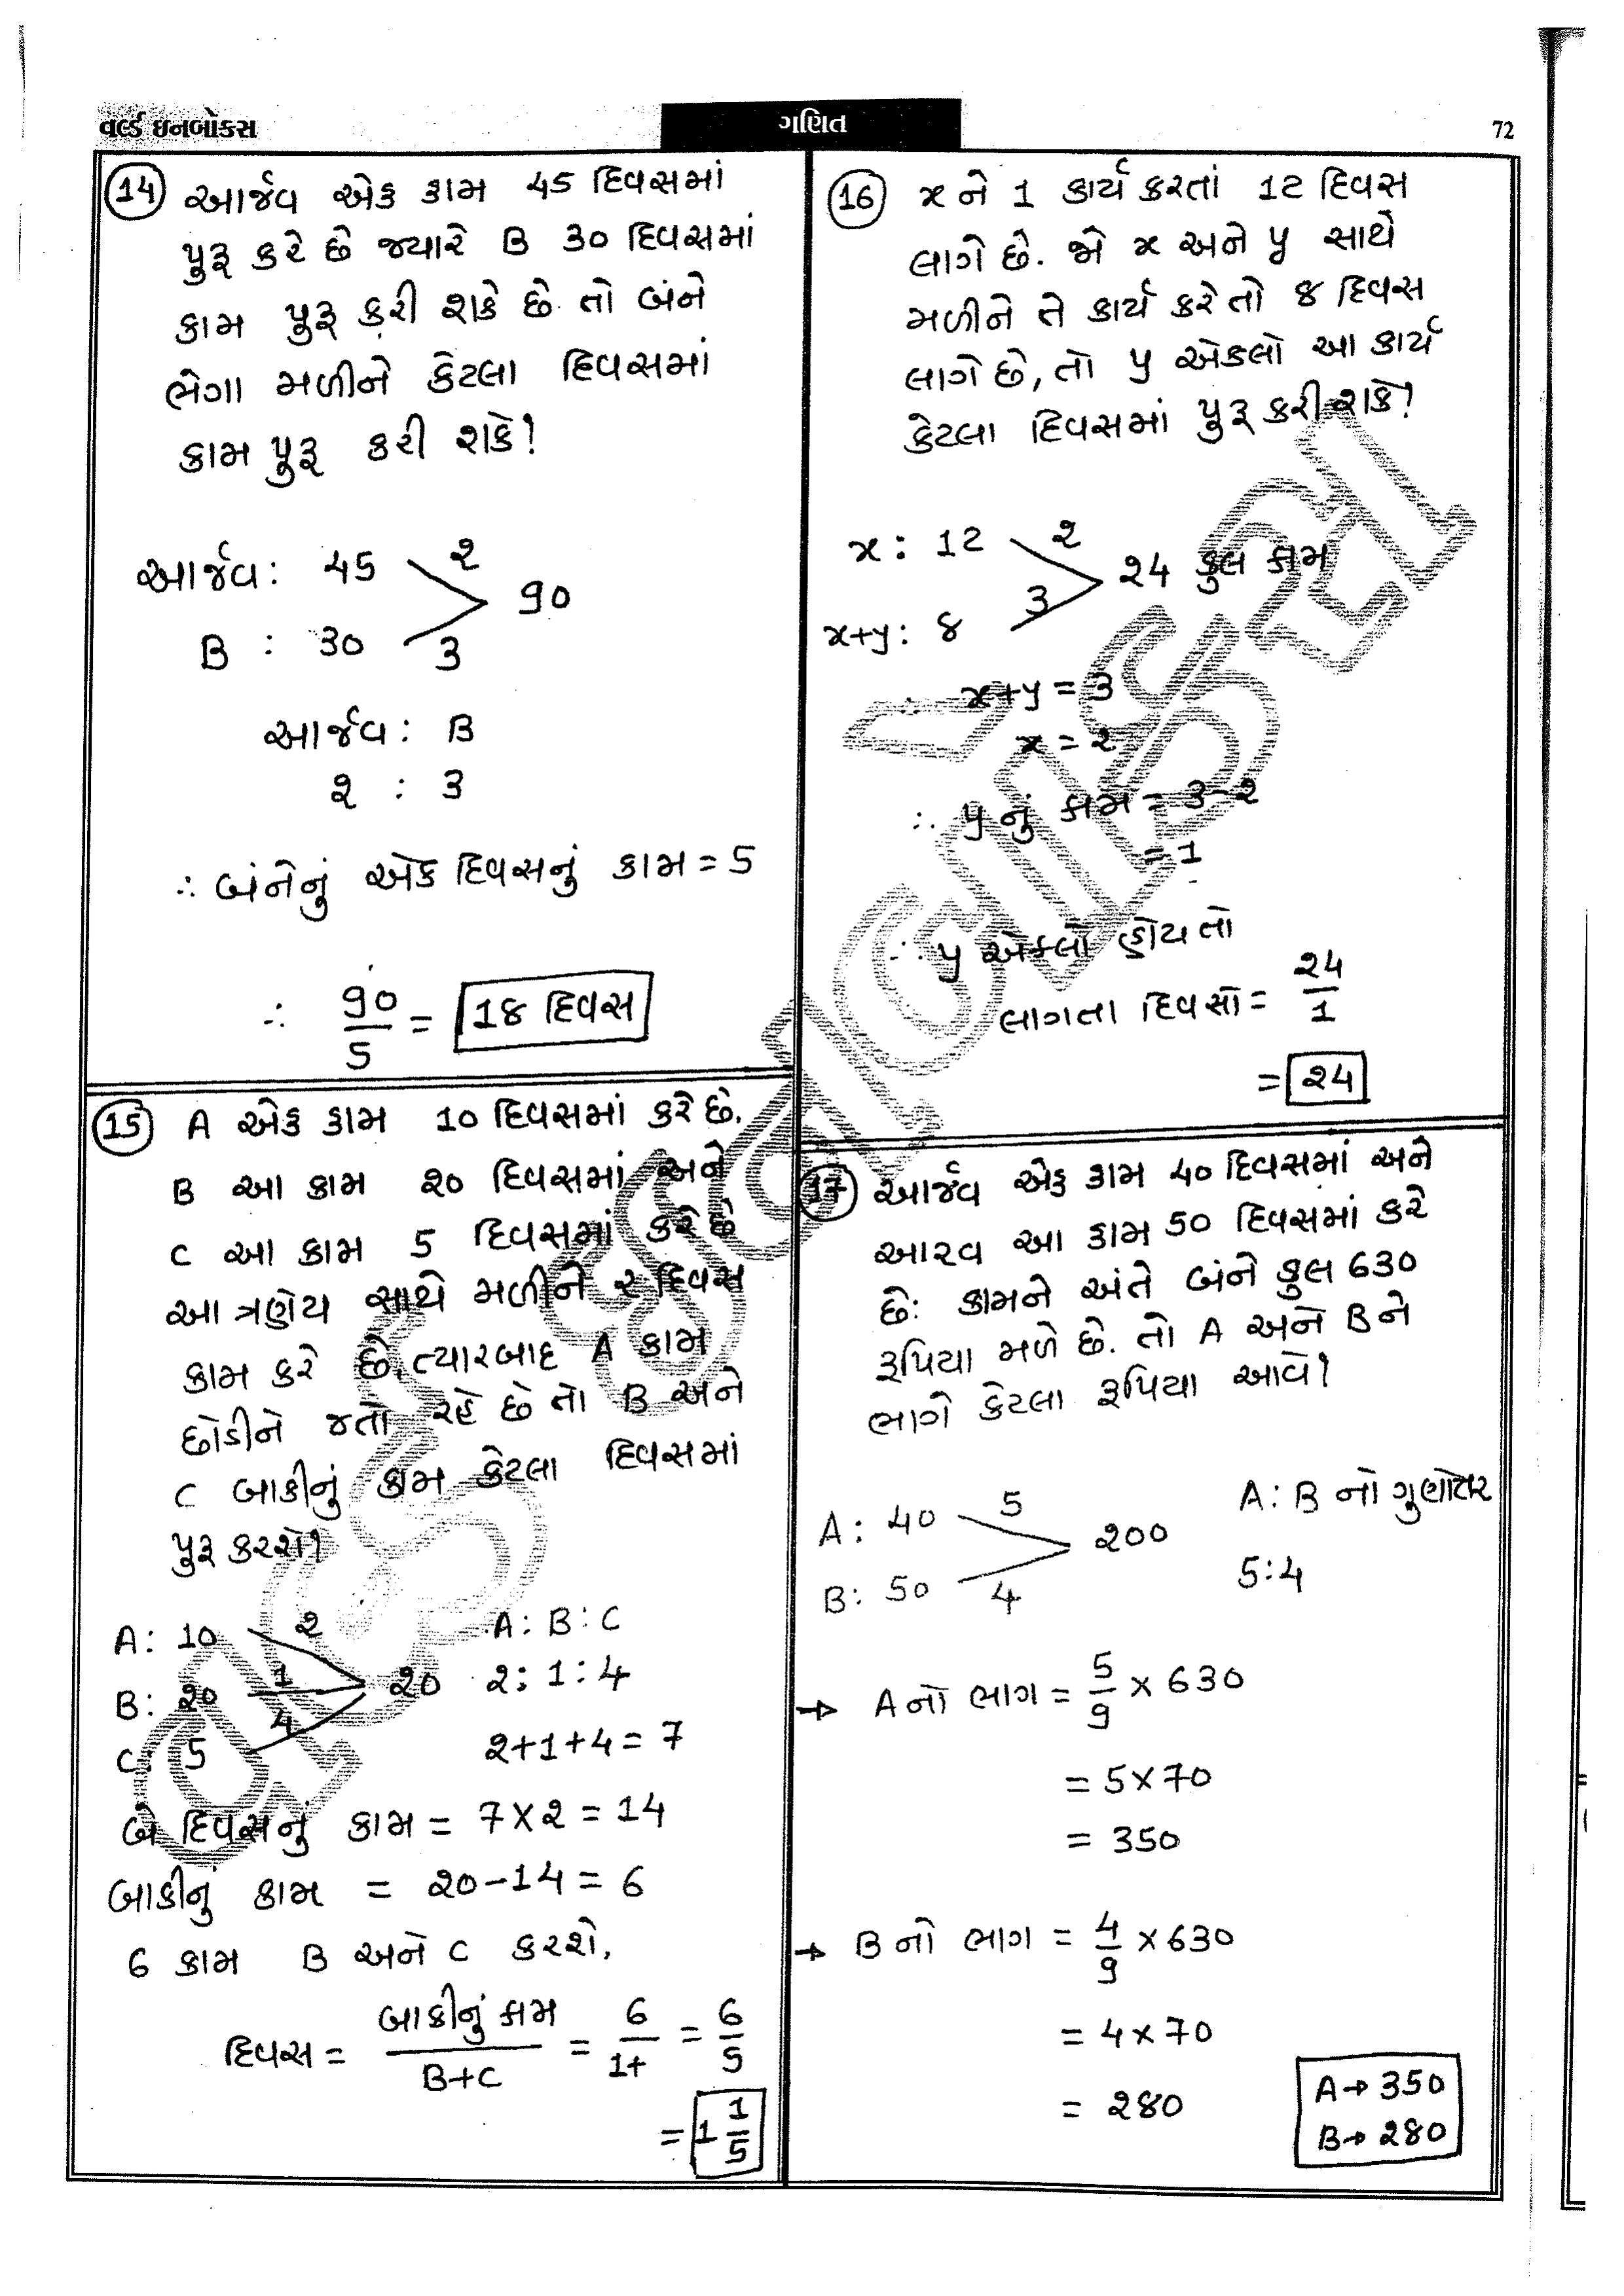 વર્લ્ડ ઇનબોક્સ
ગણિત
72
14 આર્જવ એક કામ 45 દિવસમાં
પુરૂ કરે છે જ્યારે B 30 દિવસમાં
કામ પુરૂ કરી શકે છે. તો બંને
ભેગા મળીને કેટલા દિવસમાં
કામ પુરૂ કરી શકે?
આર્જવ: 45 2
90
B : 30 3
આર્જવ : B
2 : 3
∴ બંનેનું એક દિવસનું કામ = 5
∴ 90/5 = 18 દિવસ
15 A એક કામ 10 દિવસમાં કરે છે.
B આ કામ 20 દિવસમાં અને
C આ કામ 5 દિવસમાં કરે છે
આ ત્રણેય સાથે મળીને ર દિવસ
કામ કરે છે. ત્યારબાદ A કામ
છોડીને જતો રહે છે તો B અને
C બાકીનું કામ કેટલા દિવસમાં
પુરૂ કરશે?
A: 10 2 A : B : C
B: 20 1 20 2 : 1 : 4
C: 5 4 2+1+4 = 7
બે દિવસનું કામ = 7 × 2 = 14
બાકીનું કામ = 20 - 14 = 6
6 કામ B અને C કરશે.
દિવસ = બાકીનું કામ/B+C = 6/1+ = 6/5
= 1 1/5
16 x ને 1 કાર્ય કરતાં 12 દિવસ
લાગે છે. જો x અને y સાથે
મળીને તે કાર્ય કરે તો 8 દિવસ
લાગે છે, તો y એકલો આ કાર્ય
કેટલા દિવસમાં પુરૂ કરી શકે?
x : 12 2
24 કુલ કામ
x+y : 8 3
∴ x+y = 3
x = 2
∴ y નું કામ = 3-2
= 1
∴ y એકલો હોય તો
લાગતા દિવસો = 24/1
= 24
17 આર્જવ એક કામ 40 દિવસમાં અને
આરવ આ કામ 50 દિવસમાં કરે
છે: કામને અંતે બંને કુલ 630
રૂપિયા મળે છે. તો A અને B ને
ભાગે કેટલા રૂપિયા આવે?
A : 40 5 A : B નો ગુણોત્તર
200
B : 50 4 5:4
→ A નો ભાગ = 5/9 × 630
= 5 × 70
= 350
→ B નો ભાગ = 4/9 × 630
= 4 × 70
= 280
A → 350
B → 280